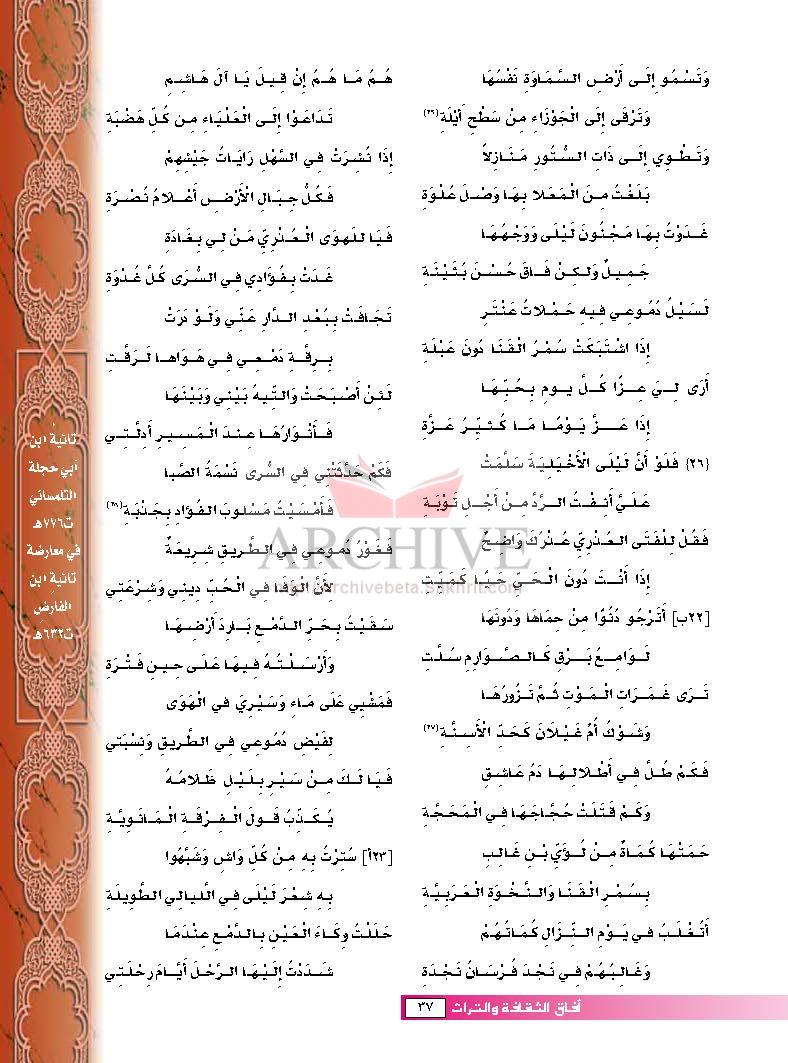 وَتَسْمُو إِلَى أَرْضِ السَّمَاوَةِ نَفْسُهَا
وَتَرْقَى إِلَى الْجَوْزَاءِ مِنْ سَطْحِ أَيْلَةِ (٣٦)
وَتَطْوِي إِلَى ذَاتِ السُّتُورِ مَنَازِلاً
بَلَغْتُ مِنَ الْمَعْلا بِهَا وَصْلَ عُلْوَةِ
غَدَوْتُ بِهَا مَجْنُونَ لَيْلَى وَوَجْهُهَا
جَمِيلٌ وَلَكِنْ فَاقَ حُسْنَ بُثَيْنَةِ
لَسَيْلُ دُمُوعِي فِيهِ حَمْلَاتُ عَنْتَرٍ
إِذَا اشْتَبَكَتْ سُمْرُ الْقَنَا دُونَ عَبْلَةِ
أَرَى لِيَ عِزّاً كُلَّ يومٍ بِحُبِّهَا
إِذَا عَزَّ يَوْمًا مَا كُثَيِّرُ عَزَّةِ
{٢٦} فَلَوْ أَنَّ لَيْلَى الْأَخْيَلِيَةَ سَلَّمَتْ
عَلَيَّ أَنِفْتُ الرَّدَّ مِنْ أَجْلِ تَوْبَةِ
فَقُلْ لِلْفَتَى الْعُذْرِيِّ عُذْرُكَ وَاضِحٌ
إِذَا أَنْتَ دُونَ الْحَيِّ حَيّاً كَمَيِّتِ
[٢٢ب] أَتَرْجُو دُنُوّاً مِنْ حِمَاهَا وَدُونَهَا
لَوَامِعُ بَرْقٍ كَالصَّوَارِمِ سُلَّتِ
تَرَى غَمَرَاتِ الْمَوْتِ ثُمَّ تَزُورُهَا
وَشَوْكُ أُمِّ غَيْلَانَ كَحَدِّ الْأَسِنَّةِ (٣٧)
فَكَمْ طُلَّ فِي أَطْلَالِهَا دَمُ عَاشِقٍ
وَكَمْ قَتَلَتْ حُجَّاجَهَا فِي الْمَحَجَّةِ
حَمَتْهَا كُمَاةٌ مِنْ لُؤَيِّ بْنِ غَالِبٍ
بِسُمْرِ الْقَنَا وَالنَّخْوَةِ الْعَرَبِيَّةِ
أَتُغْلَبُ فِي يَوْمِ النِّزَالِ كُمَاتُهُمْ
وَغَالِبُهُمْ فِي نَجْدَ فُرْسَانُ نَجْدَةِ
هُمُ مَا هُمُ إِنْ قِيلَ يَا آلَ هَاشِمٍ
تَدَاعَوْا إِلَى الْعَلْيَاءِ مِن كُلِّ هَضْبَةِ
إِذَا نُشِرَتْ فِي السَّهْلِ رَايَاتُ جَيْشِهِمْ
فَكُلُّ جِبَالِ الْأَرْضِ أَعْلَامُ نُصْرَةِ
فَيَا لَلهوَى الْعُذْرِيِّ مَنْ لِي بِغَادَةٍ
غَدَتْ بِفُؤَادِي في السُّرَى كُلَّ غُدْوَةِ
تَجَافَتْ بِبُعْدِ الدَّارِ عَنِّي وَلَوْ دَرَتْ
بِرِقَّةِ دَمْعِي فِي هَوَاهَا لَرَقَّتِ
لَئِنْ أَصْبَحَتْ وَالتِّيهُ بَيْنِي وَبَيْنَهَا
فَأَنْوَارُهَا عِنْدَ الْمَسِيرِ أَدِلَّتِي
فَكَمْ حَدَّثَتْنِي في السُّرى نَسْمَةُ الصَّبا
فَأَمْسَيْتُ مَسْلُوبَ الفُؤَادِ بِجَذْبَةِ (٣٨)
فَغَوْرُ دُمُوعِي في الطَّرِيقِ شَرِيعَةٌ
لأَنَّ الْوَفَا في الْحُبِّ دِيني وَشِرْعَتي
سَقَيْتُ بِحَرِّ الدَّمْعِ بَارِدَ أَرْضِهَا
وَأَرْسَلْتُهُ فِيهَا عَلَى حِينِ فَتْرَةِ
فَمَشْيِي عَلَى مَاءٍ وَسَيْرِيَ في الْهَوَى
لِفَيْضِ دُمُوعِي في الطَّرِيقِ وَنِسْبَتي
فَيَا لَكَ مِنْ سَيْرٍ بِلَيْلٍ ظَلَامُهُ
يُكَذِّبُ قَولَ الْفِرْقَةِ الْمَانَوِيَّةِ
[٢٣أ] سُتِرْتُ بِهِ مِنْ كُلِّ وَاشٍ وَشَبَّهُوا
بِهِ شَعْرَ لَيْلَى في اللَّيالي الطَّوِيلَةِ
حَلَلْتُ وِكَاءَ الْعَيْنِ بِالدَّمْعِ عِنْدَمَا
شَدَدْتُ إِلَيْهَا الرَّحْلَ أَيَّامَ رِحْلَتِي
تائية ابن
أبي حجلة
التلمساني
ت٧٧٦هـ
في معارضة
تائية ابن
الفارض
ت٦٣٢هـ
ARCHIVE
archivebeta.Sakhrit.com
آفاق الثقافة والتراث ٣٧